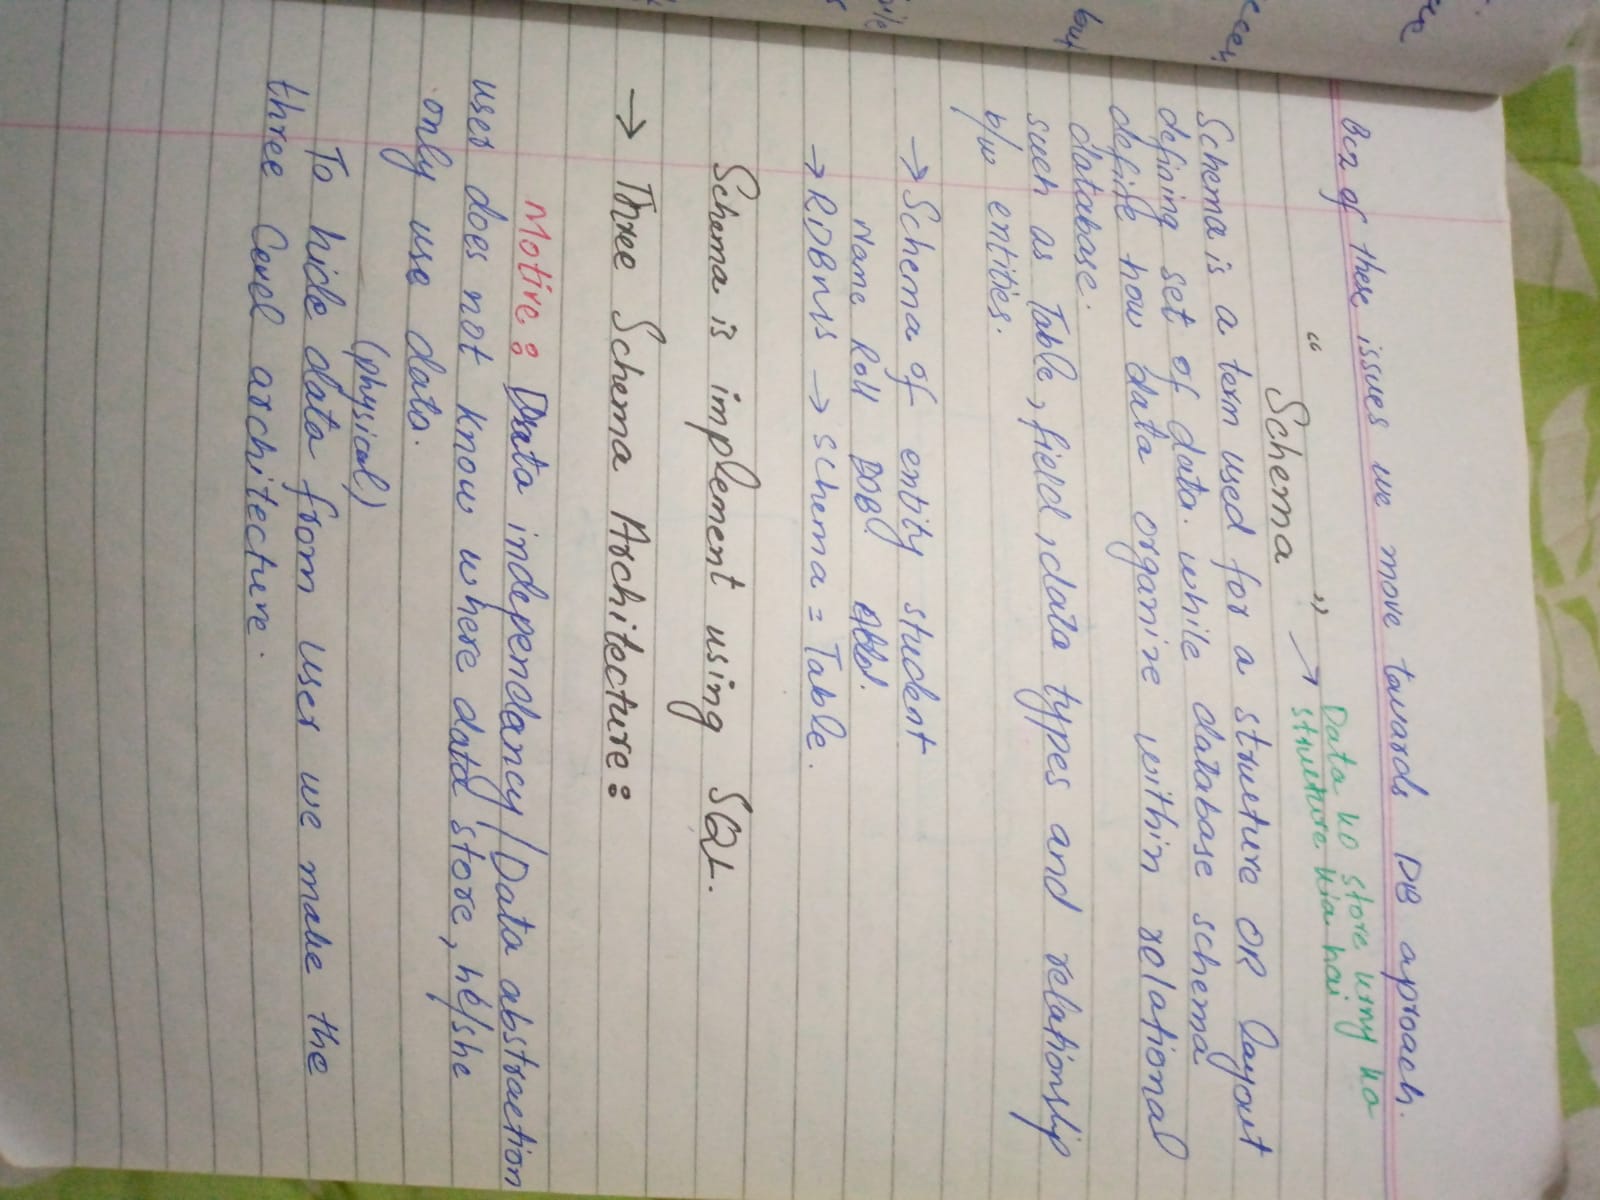 Bcz of these issues we move towards DB aproach.
" Schema " → Data ko store krny ka
structure kia hai
Schema is a term used for a structure OR layout
defining set of data. while database schema
define how data organize within relational
database.
such as Table, field, data types and relationship
b/w entities.
→ Schema of entity student
Name Roll DOB
→ RDBMS → Schema = Table.
Schema is implement using SQL.
→ Three Schema Architecture:
Motive: Data independancy/Data abstraction
user does not know where data store, he/she
only use data.
(physical)
To hide data from user we make the
three level architecture.
but